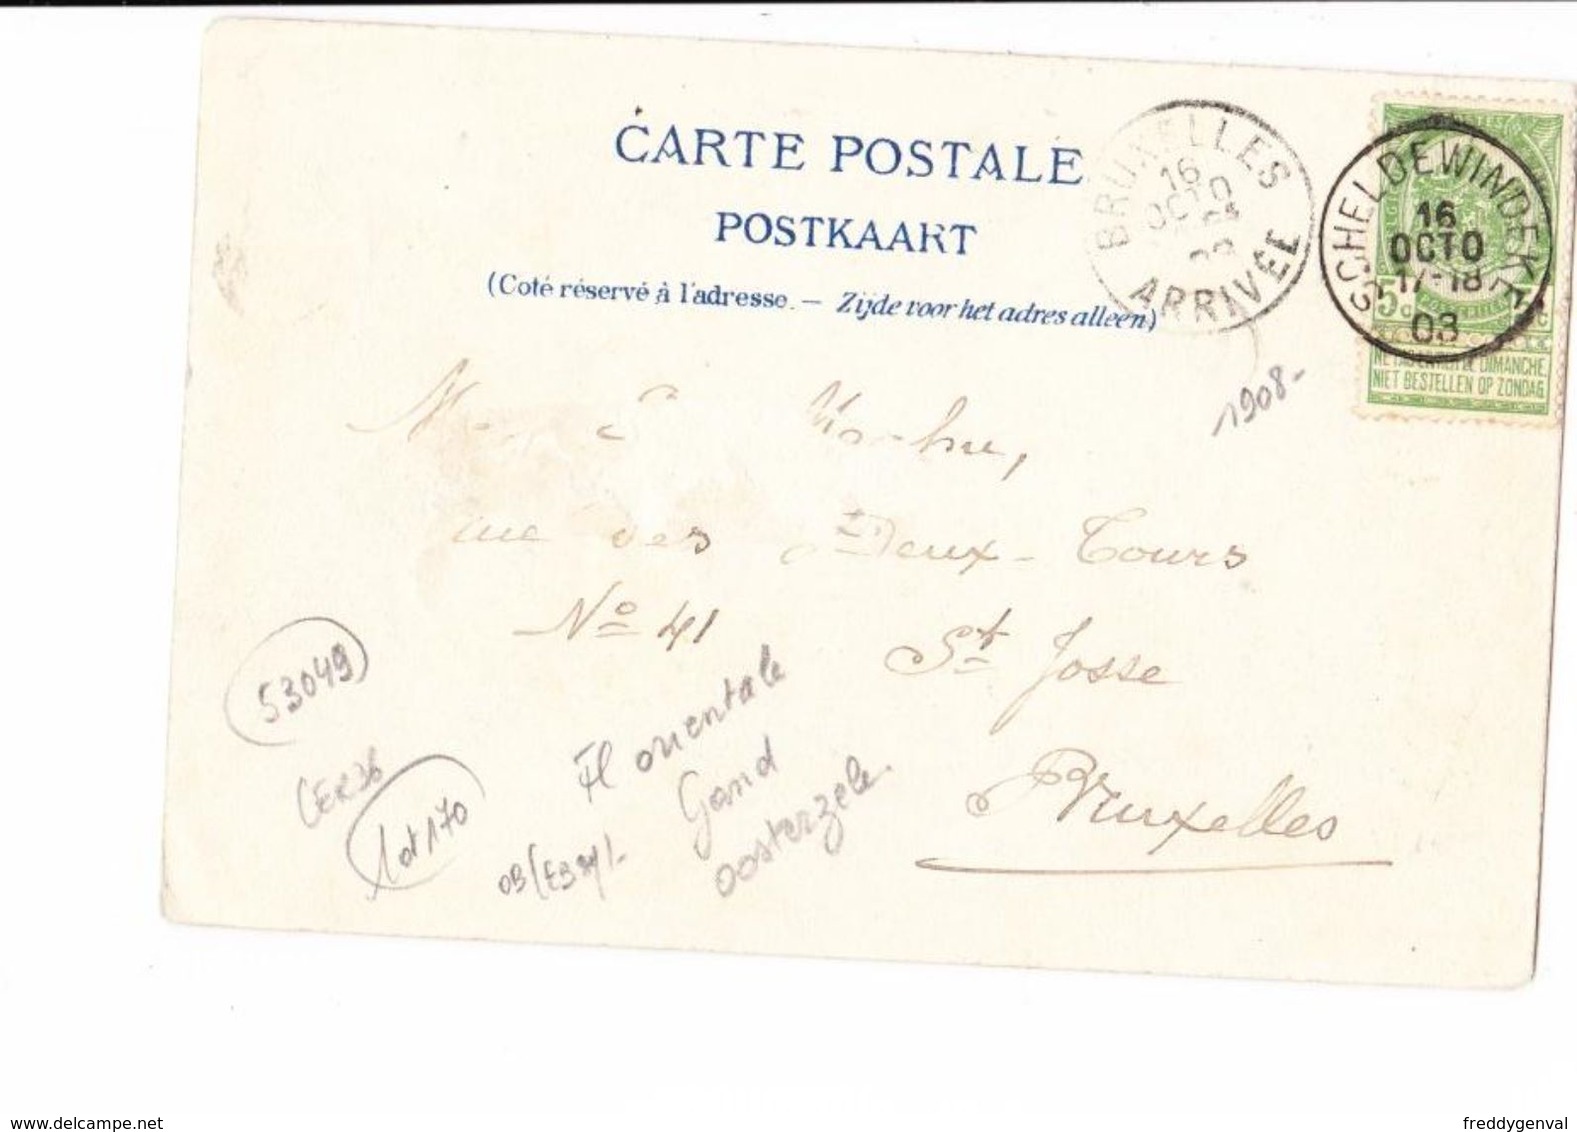 CARTE POSTALE
POSTKAART
(Coté réservé à l'adresse. — Zijde voor het adres alleen)
BRUXELLES
16
OCTO
ARRIVEE
SCHELDEWINDEKE
16
OCTO
17-18
03
5
NIET BESTELLEN OP ZONDAG
1908-
rue des Deux-Tours
No 41 St Josse
Bruxelles
53049
Lot 170
Fl orientale
Gand
oosterzele
www.delcampe.net
freddygenval